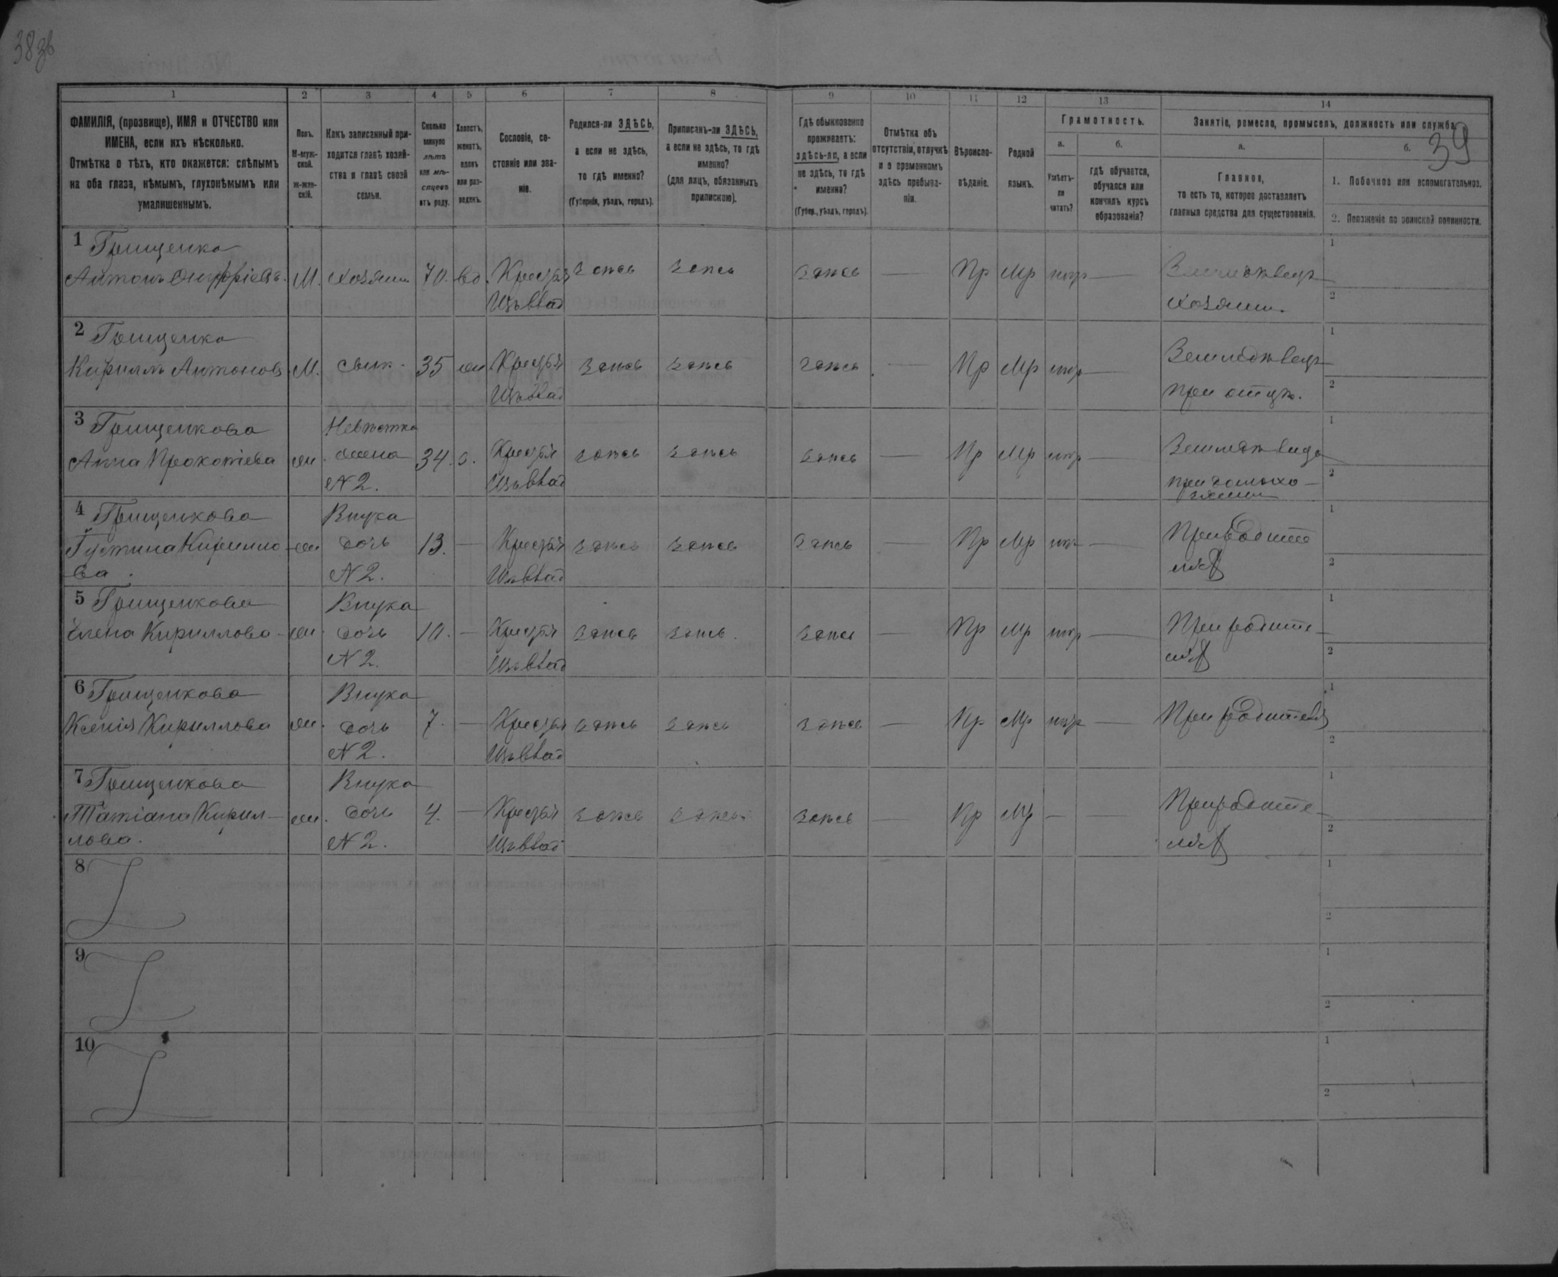 38 зв
39
1 2 3 4 5 6 7 8 9 10 11 12 13 14
ФАМИЛІЯ, (прозвище), ИМЯ и ОТЧЕСТВО или
ИМЕНА, если ихъ нѣсколько.
Отмѣтка о тѣхъ, кто окажется: слѣпымъ
на оба глаза, нѣмымъ, глухонѣмымъ или
умалишеннымъ.
Полъ.
М-муж-
ской.
ж-жен-
скій.
Какъ записанный при-
ходится главѣ хозяй-
ства и главѣ своей
семьи.
Сколько
минуло
лѣтъ
или мѣ-
сяцевъ
отъ роду.
Холостъ,
женатъ,
вдовъ
или раз-
веденъ.
Сословіе, со-
стояніе или зва-
ніе.
Родился-ли ЗДѢСЬ,
а если не здѣсь,
то гдѣ именно?
(Губернія, уѣздъ, городъ).
Приписанъ-ли ЗДѢСЬ,
а если не здѣсь, то гдѣ
именно?
(для лицъ, обязанныхъ
припискою).
Гдѣ обыкновенно
проживаетъ:
здѣсь-ли, а если
не здѣсь, то гдѣ
именно?
(Губер., уѣздъ, городъ).
Отмѣтка объ
отсутствіи, отлучкѣ
и о временномъ
здѣсь пребыва-
ніи.
Вѣроиспо-
вѣданіе.
Родной
языкъ.
Грамотность.
а.
Умѣетъ-
ли
читать?
б.
гдѣ обучается,
обучался или
кончилъ курсъ
образованія?
Занятіе, ремесло, промыселъ, должность или служба.
а.
Главное,
то есть то, которое доставляетъ
главныя средства для существованія.
б.
1. Побочное или вспомогательное.
2. Положеніе по воинской повинности.
1 Грищенко
Антонъ Онуфріевъ М. Хозяинъ 70. вд. Крестьян здѣсь здѣсь здѣсь — Пр Мр нгр — Земледѣлецъ
Хозяинъ.
2 Грищенко
Кириллъ Антоновъ М. сынъ 35 ж Крестьян здѣсь здѣсь здѣсь — Пр Мр нгр — Земледѣлецъ
при отцѣ.
3 Грищенкова Невѣстка
Анна Прокопіева ж жена 34. з. Крестьян здѣсь здѣсь здѣсь — Пр Мр нгр —
N 2.
4 Грищенкова Внука
Густина Кирилло- ж дочь 13. — Крестьян здѣсь здѣсь здѣсь — Пр Мр нгр — При родите-
ва. N 2. ляхъ
5 Грищенкова Внука
Елена Кириллова ж дочь 10. — Крестьян здѣсь здѣсь здѣсь — Пр Мр нгр — При родите-
N 2. ляхъ
6 Грищенкова Внука
Ксенія Кириллова ж. дочь 7. — Крестьян здѣсь здѣсь здѣсь — Пр Мр нгр — При родителяхъ
N 2.
7 Грищенкова Внука
Татіана Кирил- ж. дочь 4. — Крестьян здѣсь здѣсь здѣсь — Пр Мр — — При родите-
лова. N 2. ляхъ
8
9
10